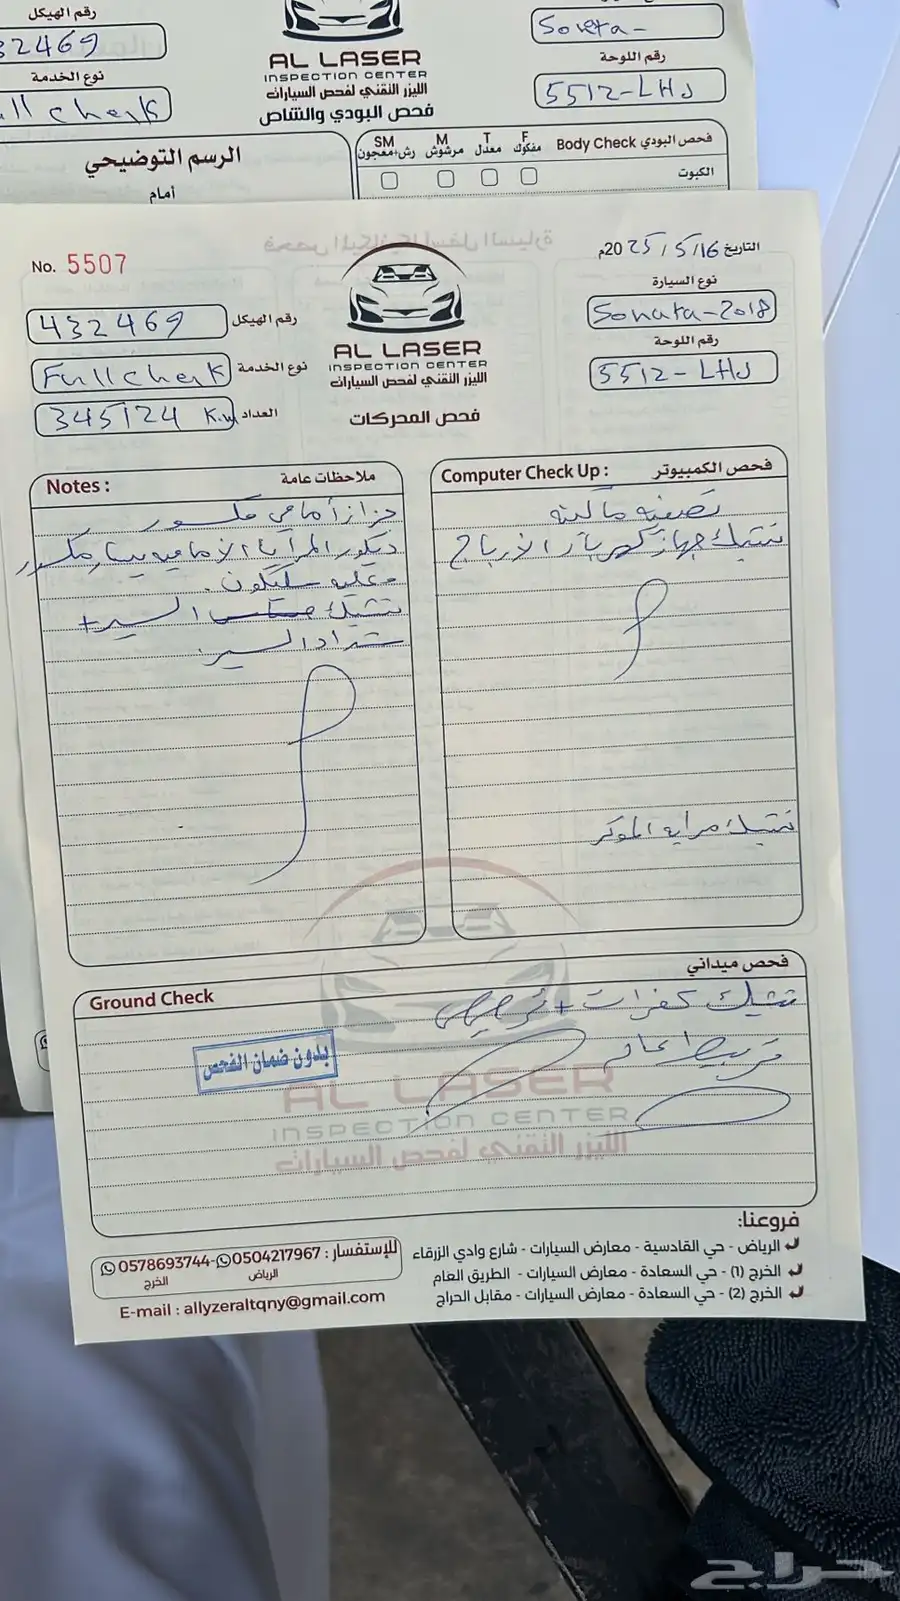 رقم الهيكل
32469
نوع الخدمة
ll check
AL LASER
INSPECTION CENTER
الليزر التقني لفحص السيارات
فحص البودي والشاص
Sonata-
رقم اللوحة
5512-LHJ
الرسم التوضيحي
أمام
SM M T F
فحص البودي Body Check مفكوك معدل مرشوش رش+معجون
الكبوت
No. 5507
التاريخ 2025/5/16م
نوع السيارة
Sonata-2018
رقم اللوحة
5512-LHJ
رقم الهيكل 432469
نوع الخدمة Full check
العداد 345124 K.m
AL LASER
INSPECTION CENTER
الليزر التقني لفحص السيارات
فحص المحركات
Computer Check Up : فحص الكمبيوتر
تصفية ماكينة
تشيك جهاز الارباج
تشيك مراية الموكر
Notes : ملاحظات عامة
قزاز أمامي مكسور
ديكور المرايا الأمامية يسار مكسور
وعليه سليكون.
تشيك السير +
شداد السير.
Ground Check فحص ميداني
تشيك كفرات + ترصيص
تربيط عام
بدون ضمان الفحص
AL LASER
INSPECTION CENTER
الليزر التقني لفحص السيارات
فروعنا:
الرياض - حي القادسية - معارض السيارات - شارع وادي الزرقاء
الخرج (1) - حي السعادة - معارض السيارات - الطريق العام
الخرج (2) - حي السعادة - معارض السيارات - مقابل الحراج
للإستفسار : 0504217967-0578693744
الرياض الخرج
E-mail : allyzeraltqny@gmail.com
حراج